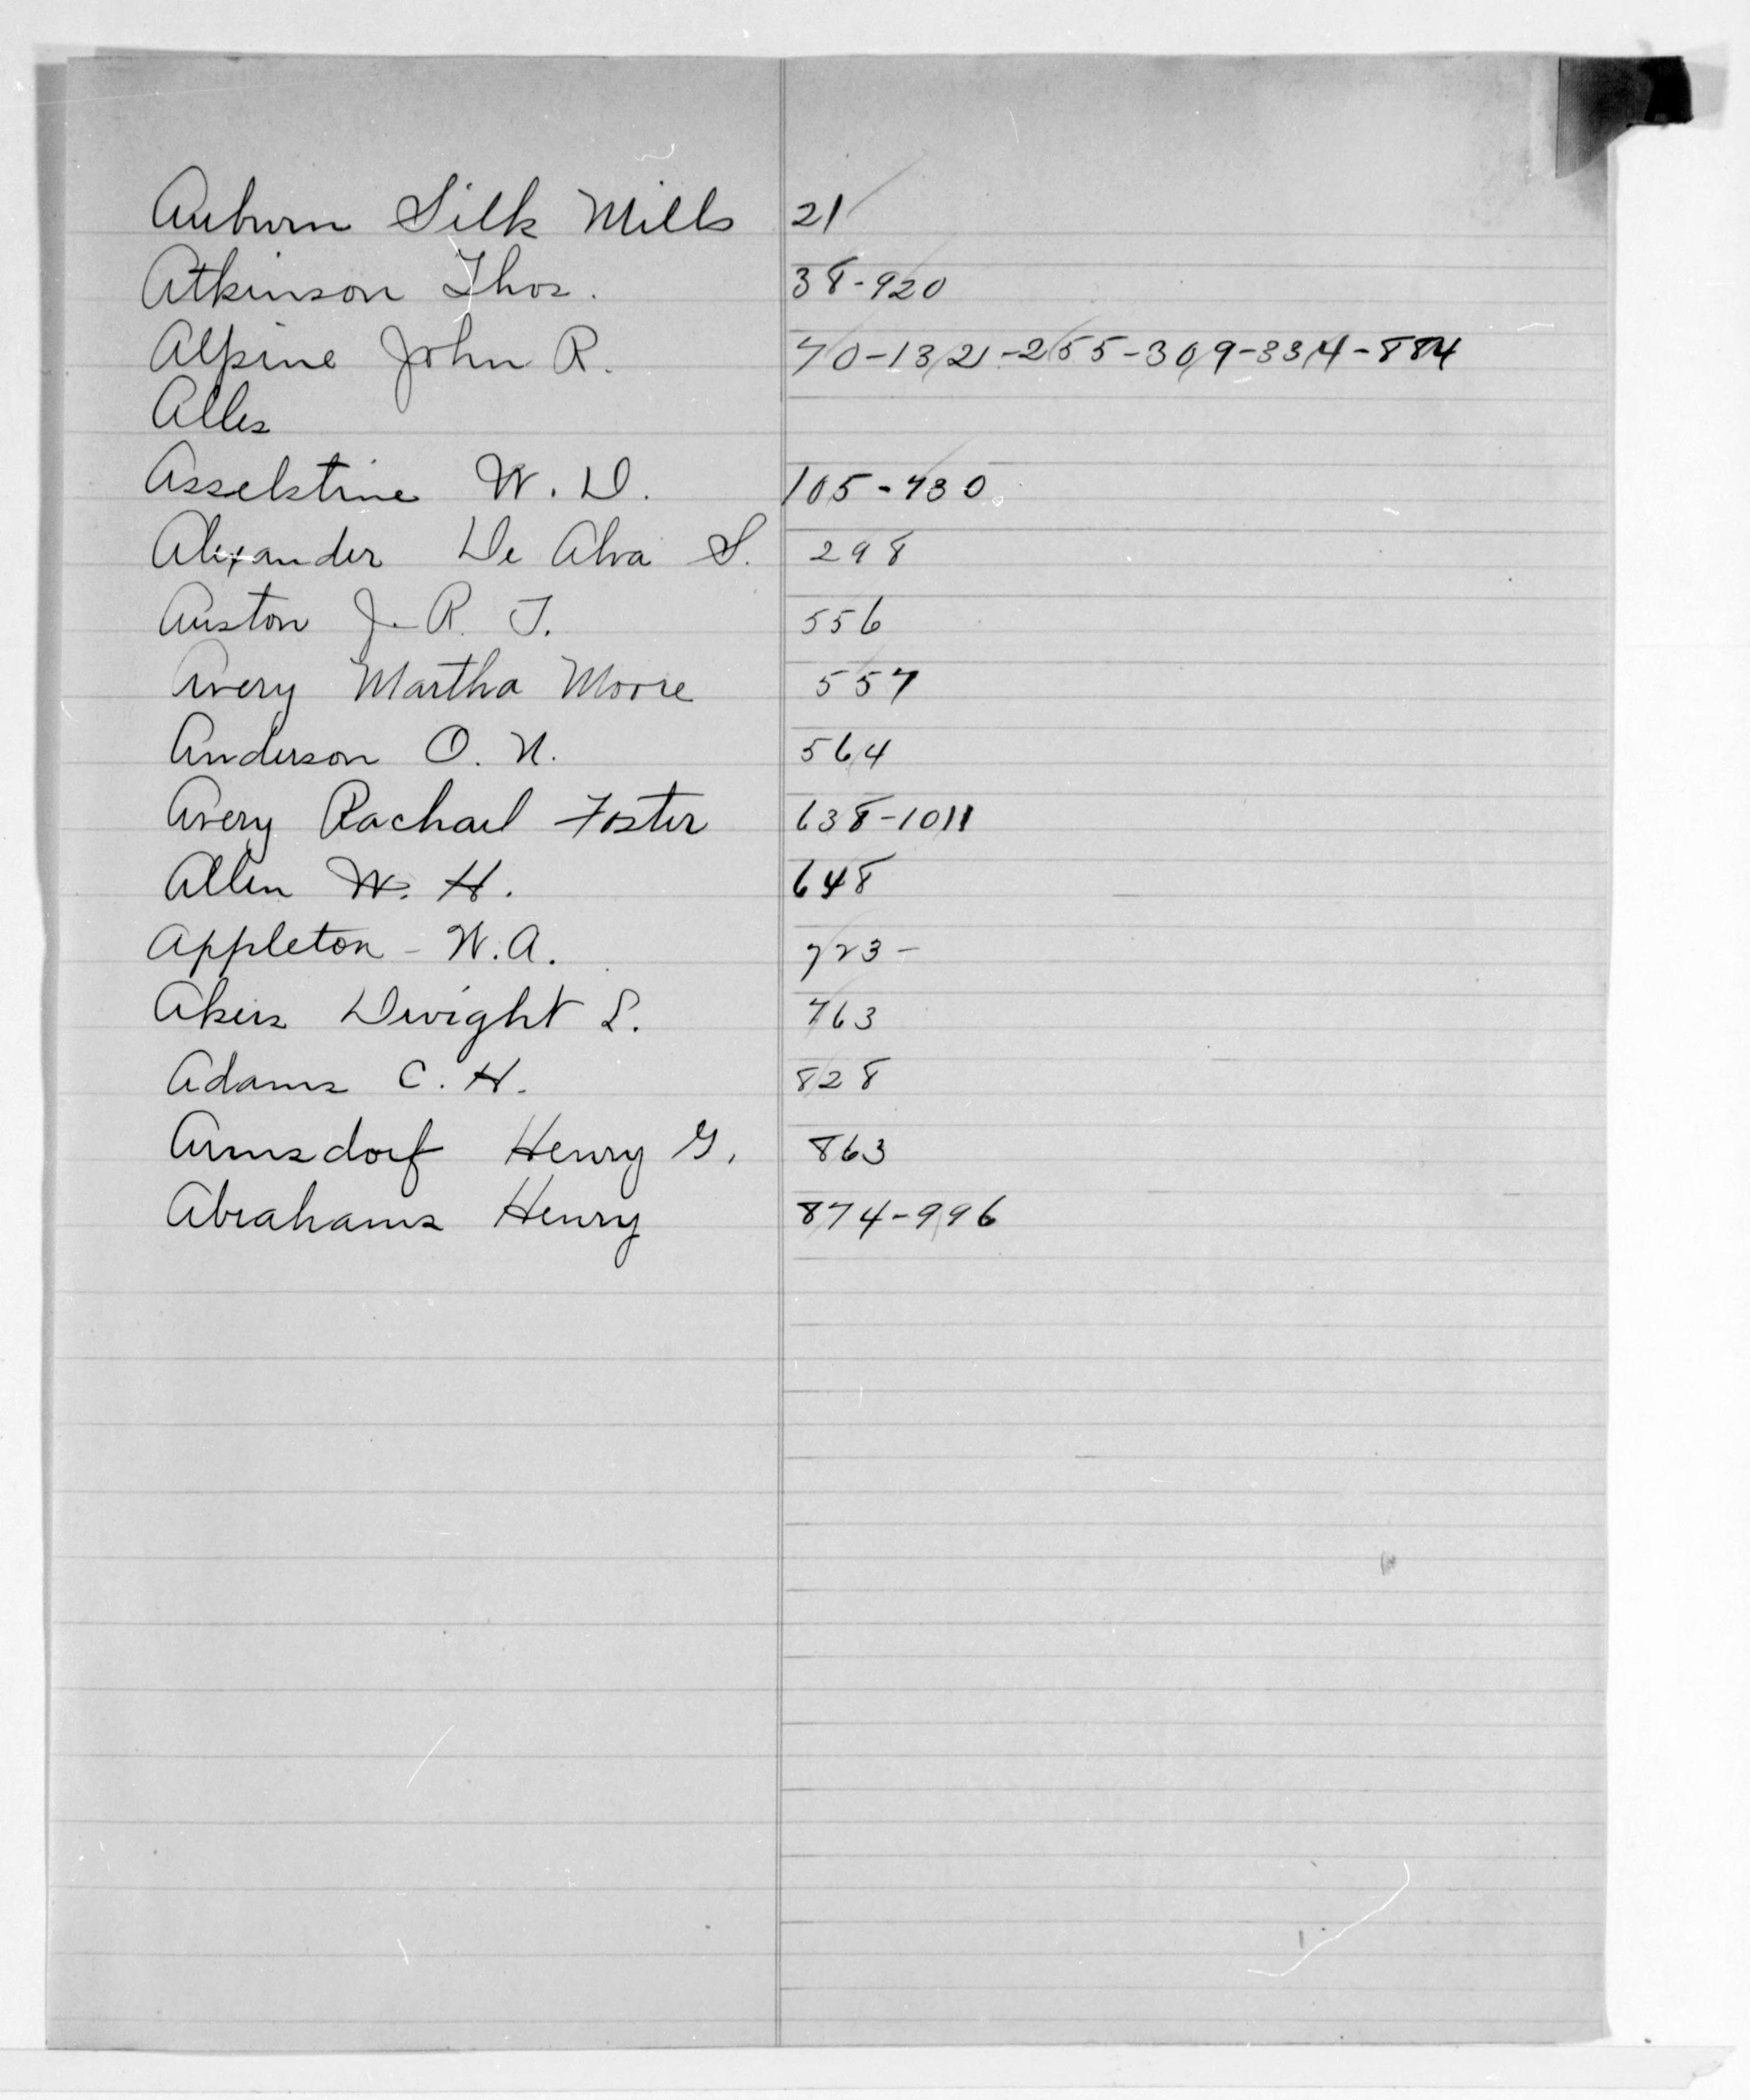 Auburn Silk Mills 21
Atkinson Thos. 38-920
Alpine John R. 70-132-255-309-334-884
Alles
Asselstine W. D. 105-730
Alexander De Alva S. 298
Auston J. R. T. 556
Avery Martha Moore 557
Anderson O. N. 564
Avery Rachael Foster 638-1011
Allen W. H. 648
Appleton - W.A. 723-
Akers Dwight L. 763
Adams C. H. 828
Armsdorf Henry G. 863
Abrahams Henry 874-996